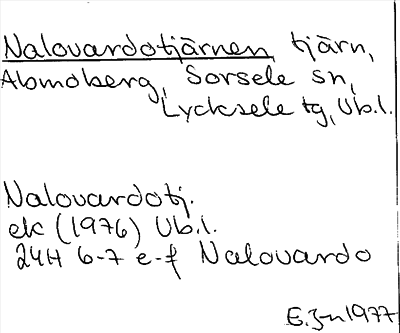 Nalovardotjärnen, tjärn,
Alomoberg, Sorsele sn,
Lycksele tg, Vb.l.
Nalovardotj.
ek (1976) Vb.l.
24H 6-7 e-f Nalovardo
1977